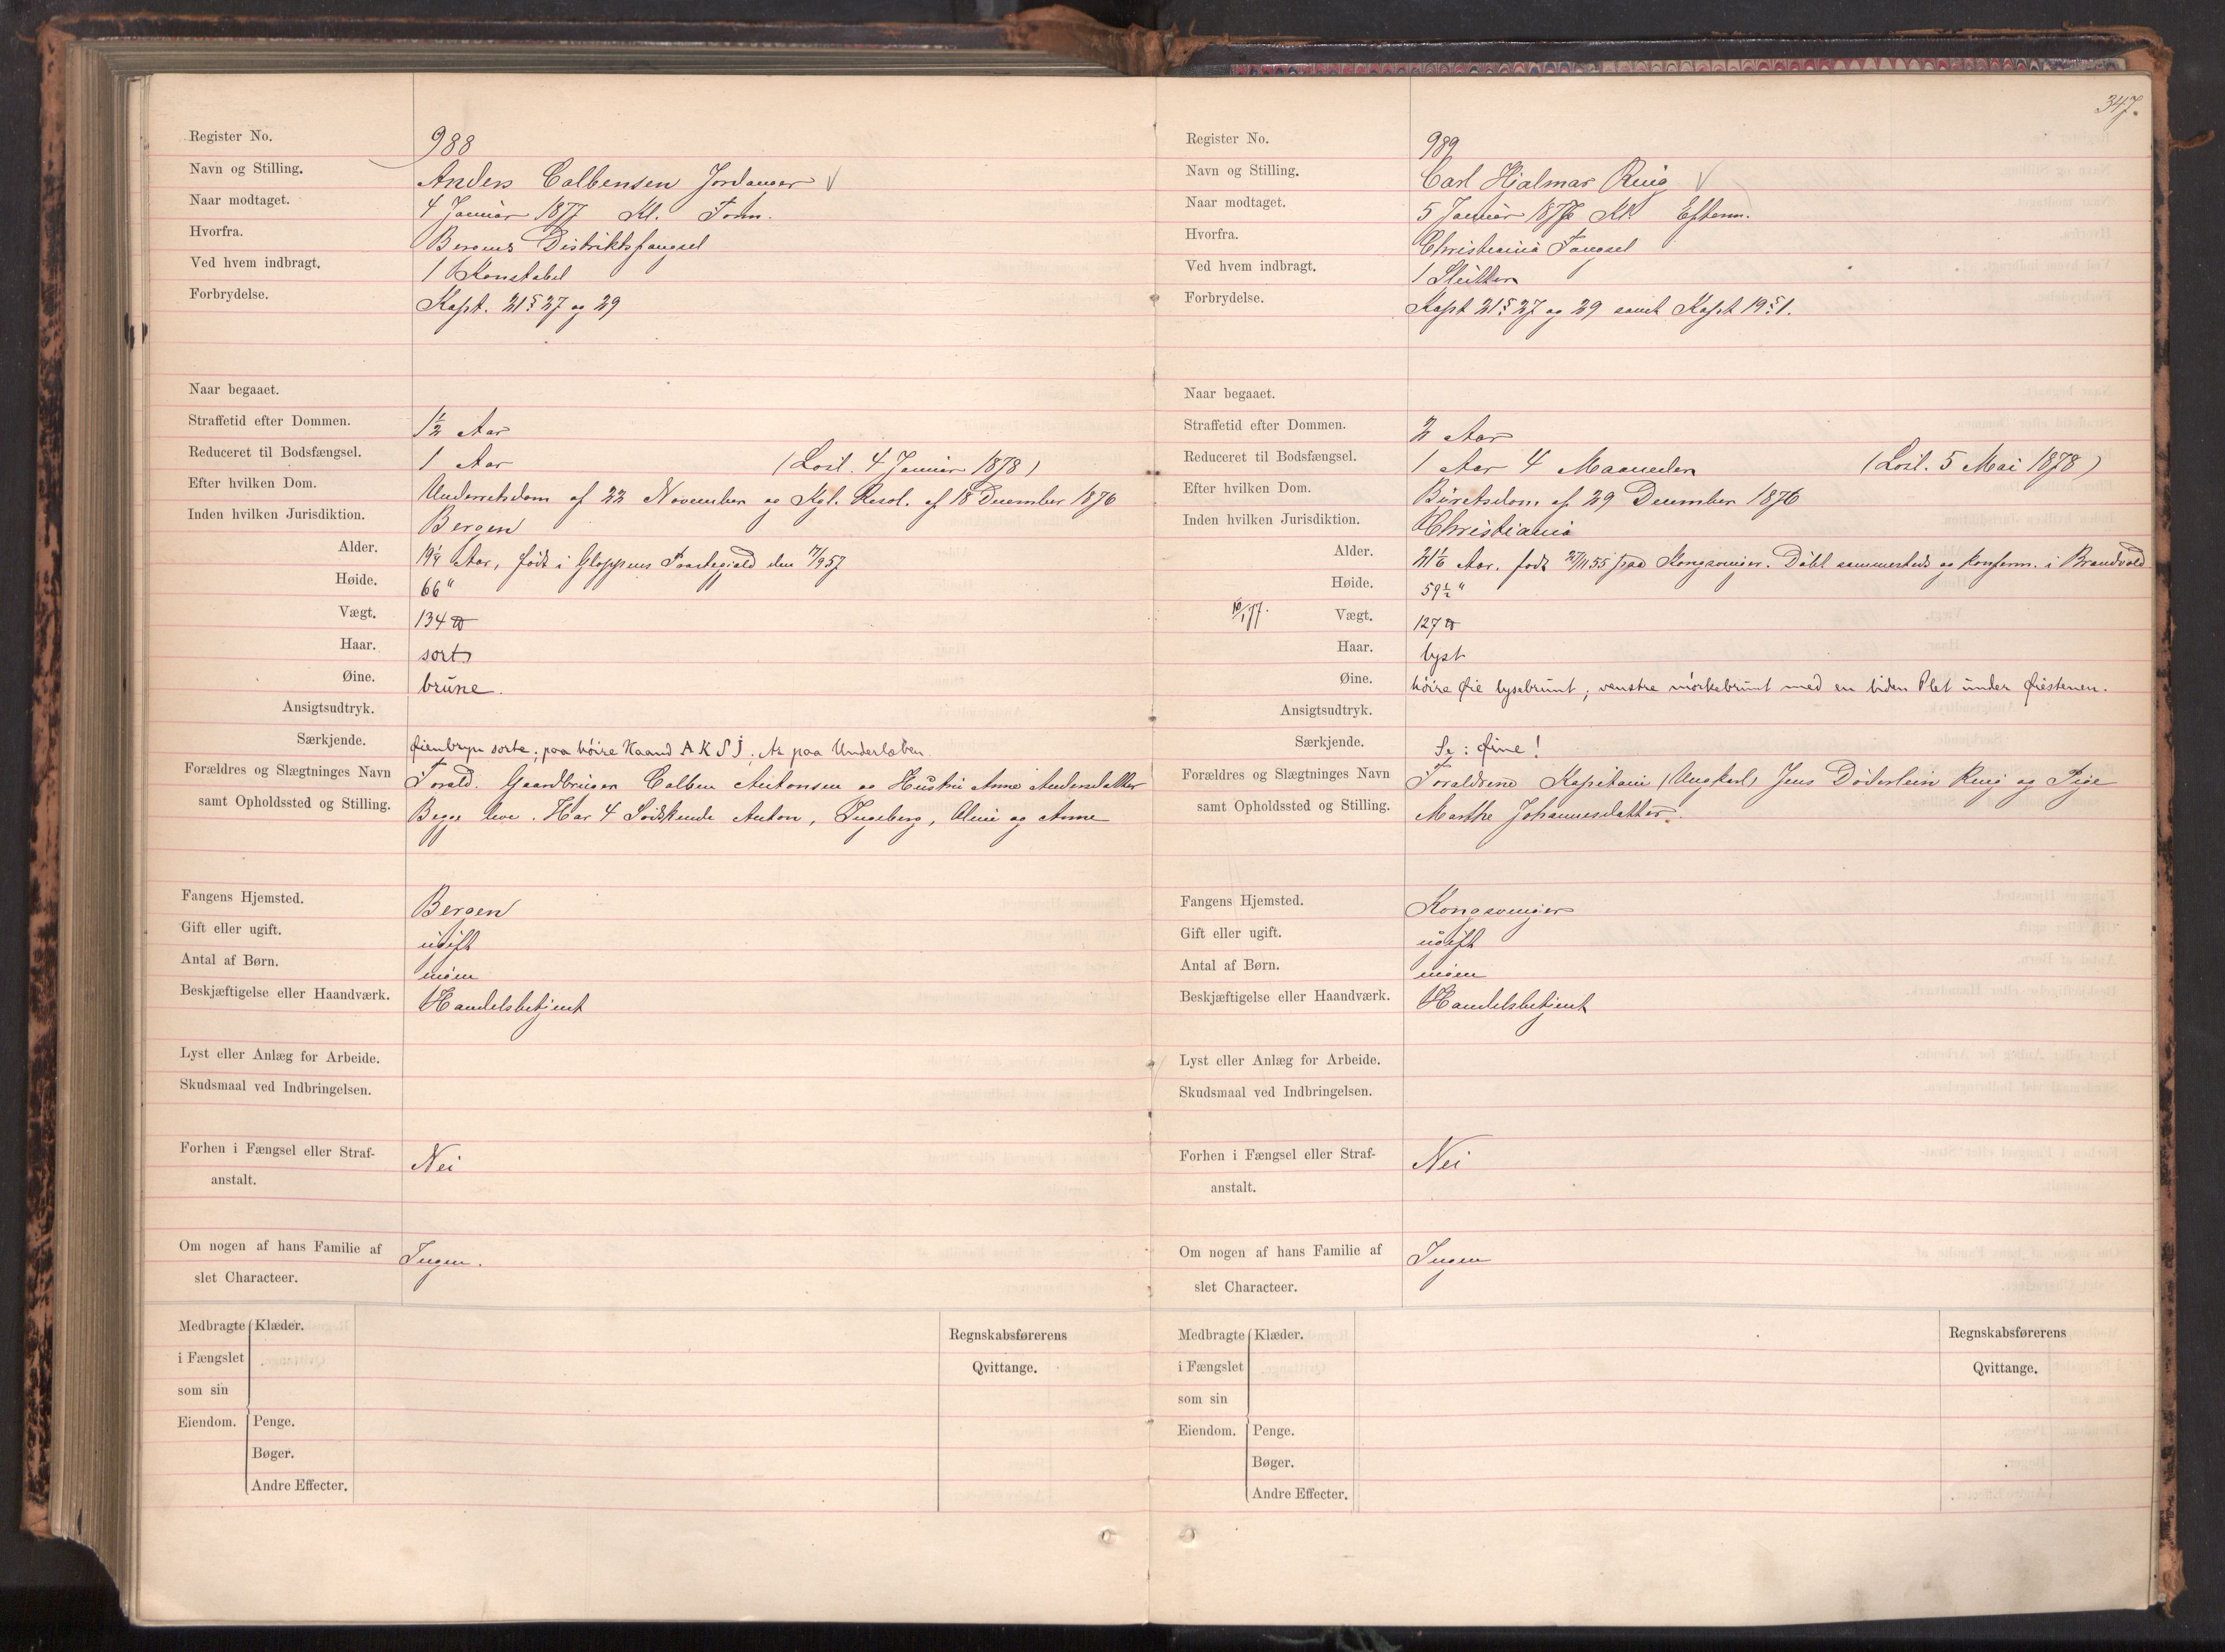 Register No. 988
Navn og Stilling. Anders Colbensen Jordanger √
Naar modtaget. 4 Januar 1877 Kl. Form.
Hvorfra. Bergens Distriktsfængsel
Ved hvem indbragt. 1 Konstabel
Forbrydelse. Kapt. 21 § 27 og 29
Naar begaaet.
Straffetid efter Dommen. 1½ Aar
Reduceret til Bodsfængsel. 1 Aar (Lösl. 4 Januar 1878)
Efter hvilken Dom. Underretsdom af 22 November og Kgl. Resol. af 18 December 1876
Inden hvilken Jurisdiktion. Bergen
Alder. 19¼ Aar, født i Gloppens Præstegjæld den 17/9 57
Høide. 66"
Vægt. 134 ℔
Haar. sort
Øine. brune.
Ansigtsudtryk.
Særkjende. Øienbryn sorte; paa höire Haand A K S J; Ar paa Underlæben.
Forældres og Slægtninges Navn Foræld. Gaardbruger Colben Antonsen og Hustru Anne Andersdatter
samt Opholdssted og Stilling. Begge leve. Har 4 Södskende Anton, Ingeborg, Oline og Anne
Fangens Hjemsted. Bergen
Gift eller ugift. ugift
Antal af Børn. ingen
Beskjæftigelse eller Haandværk. Handelsbetjent
Lyst eller Anlæg for Arbeide.
Skudsmaal ved Indbringelsen.
Forhen i Fængsel eller Straf- Nei
anstalt.
Om nogen af hans Familie af Ingen.
slet Characteer.
Medbragte Klæder. Regnskabsførerens
i Fængslet Qvittange.
som sin
Eiendom. Penge.
Bøger.
Andre Effecter.
347.
Register No. 989
Navn og Stilling. Carl Hjalmar Ring √
Naar modtaget. 5 Januar 1877 Kl. Efterm.
Hvorfra. Christiania Fængsel
Ved hvem indbragt. 1 Slutter
Forbrydelse. Kapt 21 § 27 og 29 samt Kapt 19 § 1.
Naar begaaet.
Straffetid efter Dommen. 2 Aar
Reduceret til Bodsfængsel. 1 Aar 4 Maaneder (Lösl. 5 Mai 1878)
Efter hvilken Dom. Byretsdom af 29 December 1876
Inden hvilken Jurisdiktion. Christiania
Alder. 21⅙ Aar. født 27/11 55 paa Kongsvinger. Døbt sammesteds og konferm. i Brandvold
Høide. 59½"
10/1 77. Vægt. 127 ℔
Haar. lyst
Øine. höire Øie lysebrunt; venstre mörkebrunt med en liden Plet under Øiestenen.
Ansigtsudtryk.
Særkjende. Se: Øine!
Forældres og Slægtninges Navn Forældrene Kapitain (Ungkarl) Jens Döderlein Ring og Pige
samt Opholdssted og Stilling. Marthe Johannesdatter.
Fangens Hjemsted. Kongsvinger
Gift eller ugift. ugift
Antal af Børn. ingen
Beskjæftigelse eller Haandværk. Handelsbetjent
Lyst eller Anlæg for Arbeide.
Skudsmaal ved Indbringelsen.
Forhen i Fængsel eller Straf- Nei
anstalt.
Om nogen af hans Familie af Ingen
slet Characteer.
Medbragte Klæder. Regnskabsførerens
i Fængslet Qvittange.
som sin
Eiendom. Penge.
Bøger.
Andre Effecter.